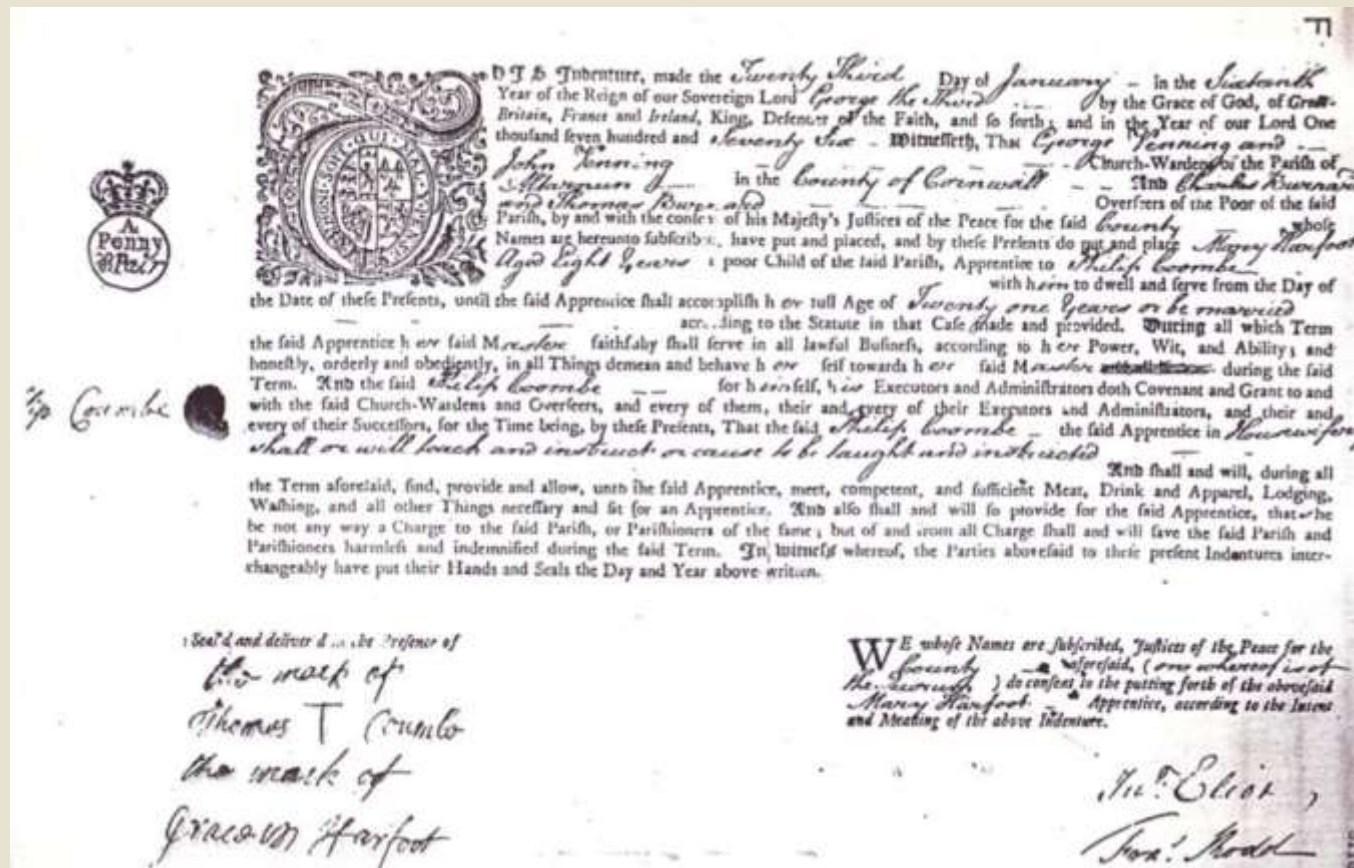 F
THIS Indenture, made the Twenty Third Day of January – in the Sixteenth
Year of the Reign of our Sovereign Lord George the Third by the Grace of God, of Great-
Britain, France and Ireland, King, Defender of the Faith, and so forth; and in the Year of our Lord One
thousand seven hundred and Seventy Six – Witnesseth, That George Venning and
John Venning Church-Wardens of the Parish of
in the County of Cornwall And Charles Burnard
and Thomas Burnard Overseers of the Poor of the said
Parish, by and with the consent of his Majesty's Justices of the Peace for the said County whose
Names are hereunto subscribed, have put and placed, and by these Presents do put and place Mary Harfoot
Aged Eight Years a poor Child of the said Parish, Apprentice to Philip Coombe
with him to dwell and serve from the Day of
the Date of these Presents, until the said Apprentice shall accomplish her full Age of Twenty one Years or be married
according to the Statute in that Case made and provided. During all which Term
the said Apprentice her said Master faithfully shall serve in all lawful Business, according to her Power, Wit, and Ability; and
honestly, orderly and obediently, in all Things demean and behave her self towards her said Master during the said
Term. And the said Philip Coombe for himself, his Executors and Administrators doth Covenant and Grant to and
with the said Church-Wardens and Overseers, and every of them, their and every of their Executors and Administrators, and their and
every of their Successors, for the Time being, by these Presents, That the said Philip Coombe – the said Apprentice in Housewifery
shall or will teach and instruct or cause to be taught and instructed
And shall and will, during all
the Term aforesaid, find, provide and allow, unto the said Apprentice, meet, competent, and sufficient Meat, Drink and Apparel, Lodging,
Washing, and all other Things necessary and fit for an Apprentice. And also shall and will so provide for the said Apprentice, that she
be not any way a Charge to the said Parish, or Parishioners of the same; but of and from all Charge shall and will save the said Parish and
Parishioners harmless and indemnified during the said Term. In witness whereof, the Parties abovesaid to these present Indentures inter-
changeably have put their Hands and Seals the Day and Year above written.
A
Penny
Pair
HONI SOIT QUI MAL Y PENSE
Coumbe
Seal'd and deliver'd in the Presence of
the mark of
Thomas T Coumbe
the mark of
Grace Harfoot
WE whose Names are subscribed, Justices of the Peace for the
County aforesaid, (one whereof is of
the Quorum) do consent to the putting forth of the abovesaid
Mary Harfoot Apprentice, according to the Intent
and Meaning of the above Indenture.
Jno. Eliot
Rodd